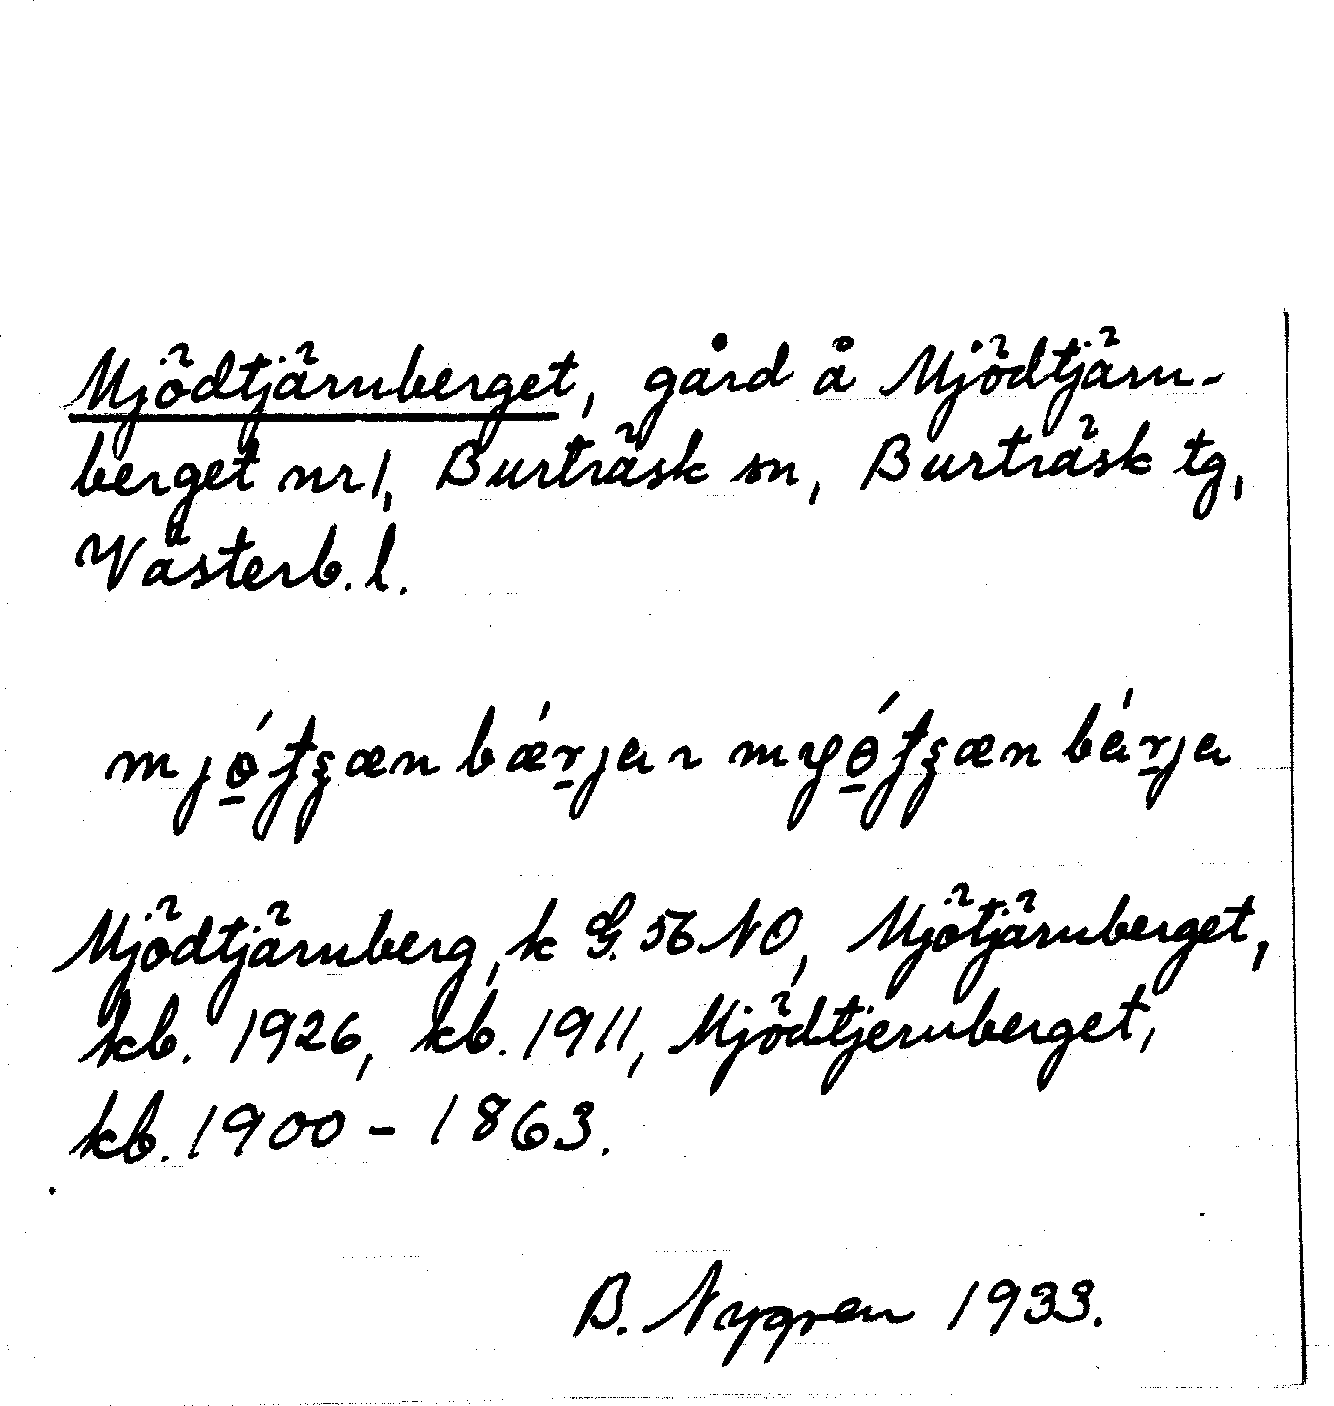 Mjödtjärnberget, gård å Mjödtjärn-
berget nr 1, Burträsk sn, Burträsk tg,
Västerb. l.
Mjödtjärnberg, k G. 56 NO, Mjötjärnberget,
kb. 1926, kb. 1911, Mjödtjernberget,
kb. 1900 - 1863.
B. Nygren 1933.